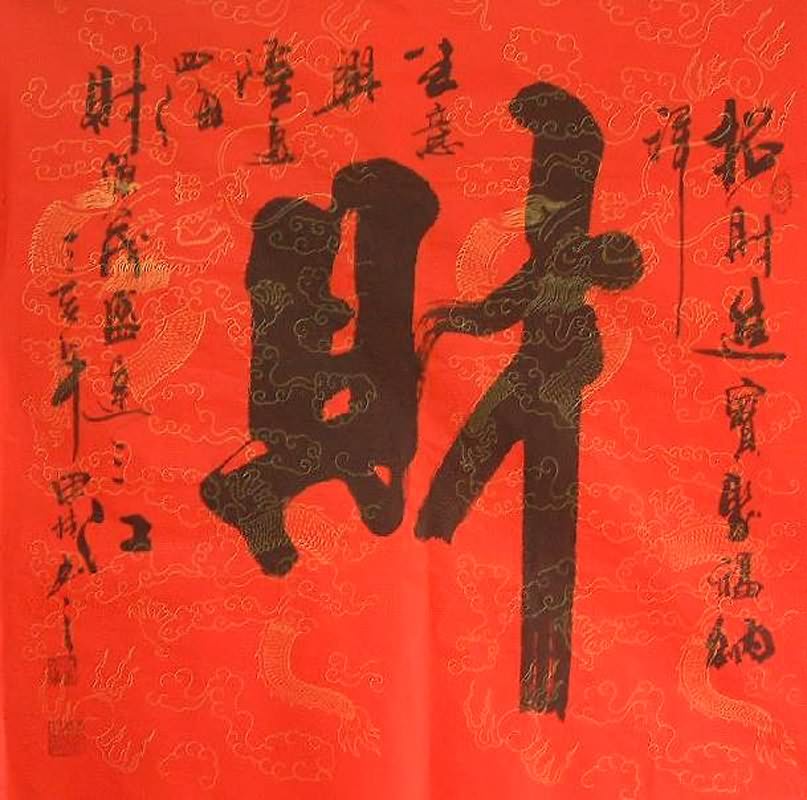 招財進寶聚福納
祥
財
生意
興
隆通
四海
財源茂盛達三
江
亥年